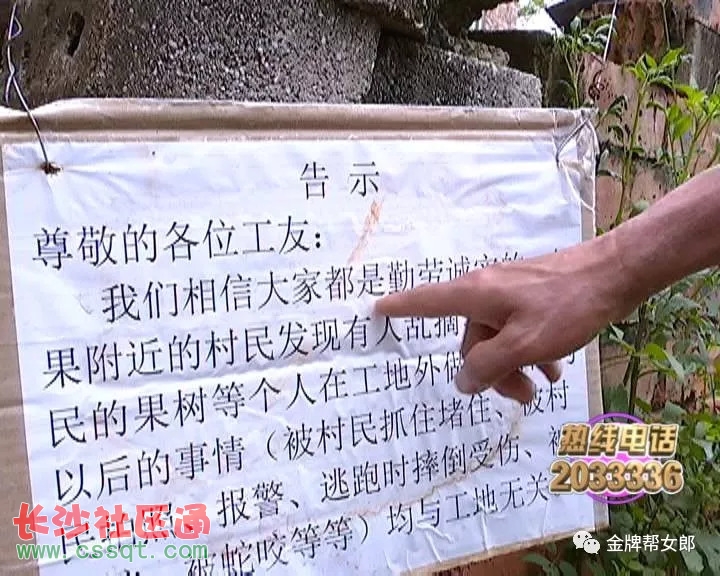 告示
尊敬的各位工友：
我们相信大家都是勤劳诚实的
果附近的村民发现有人乱摘
民的果树等个人在工地外做
以后的事情（被村民抓住堵住、被村
报警、逃跑时摔倒受伤、被
被蛇咬等等）均与工地无关
热线电话
2033336
长沙社区通
www.cssqt.com
金牌帮女郎